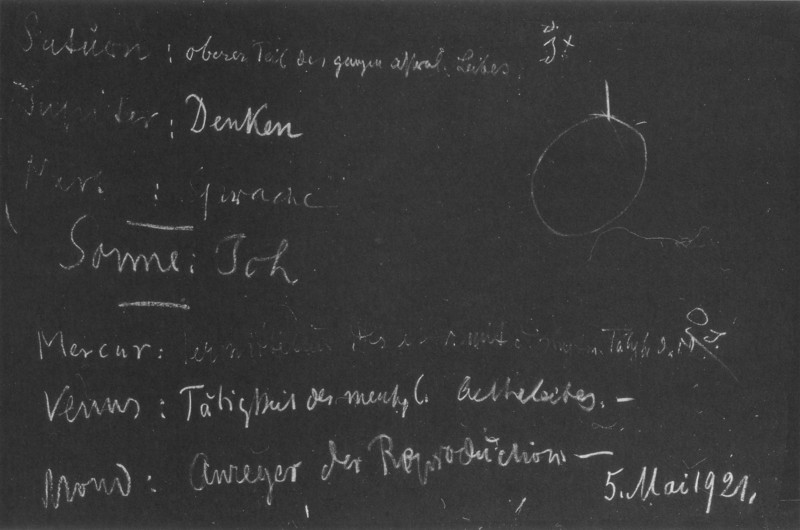 Saturn : oberer Teil des ganzen astral. Leibes.
Jupiter : Denken
Mars : Sprache
Sonne : Ich
Mercur : des Tätigk. d. M
Venus : Tätigkeit des menschl. Aetherleibes. –
Mond : Anreger der Reproduction –
5. Mai 1921.